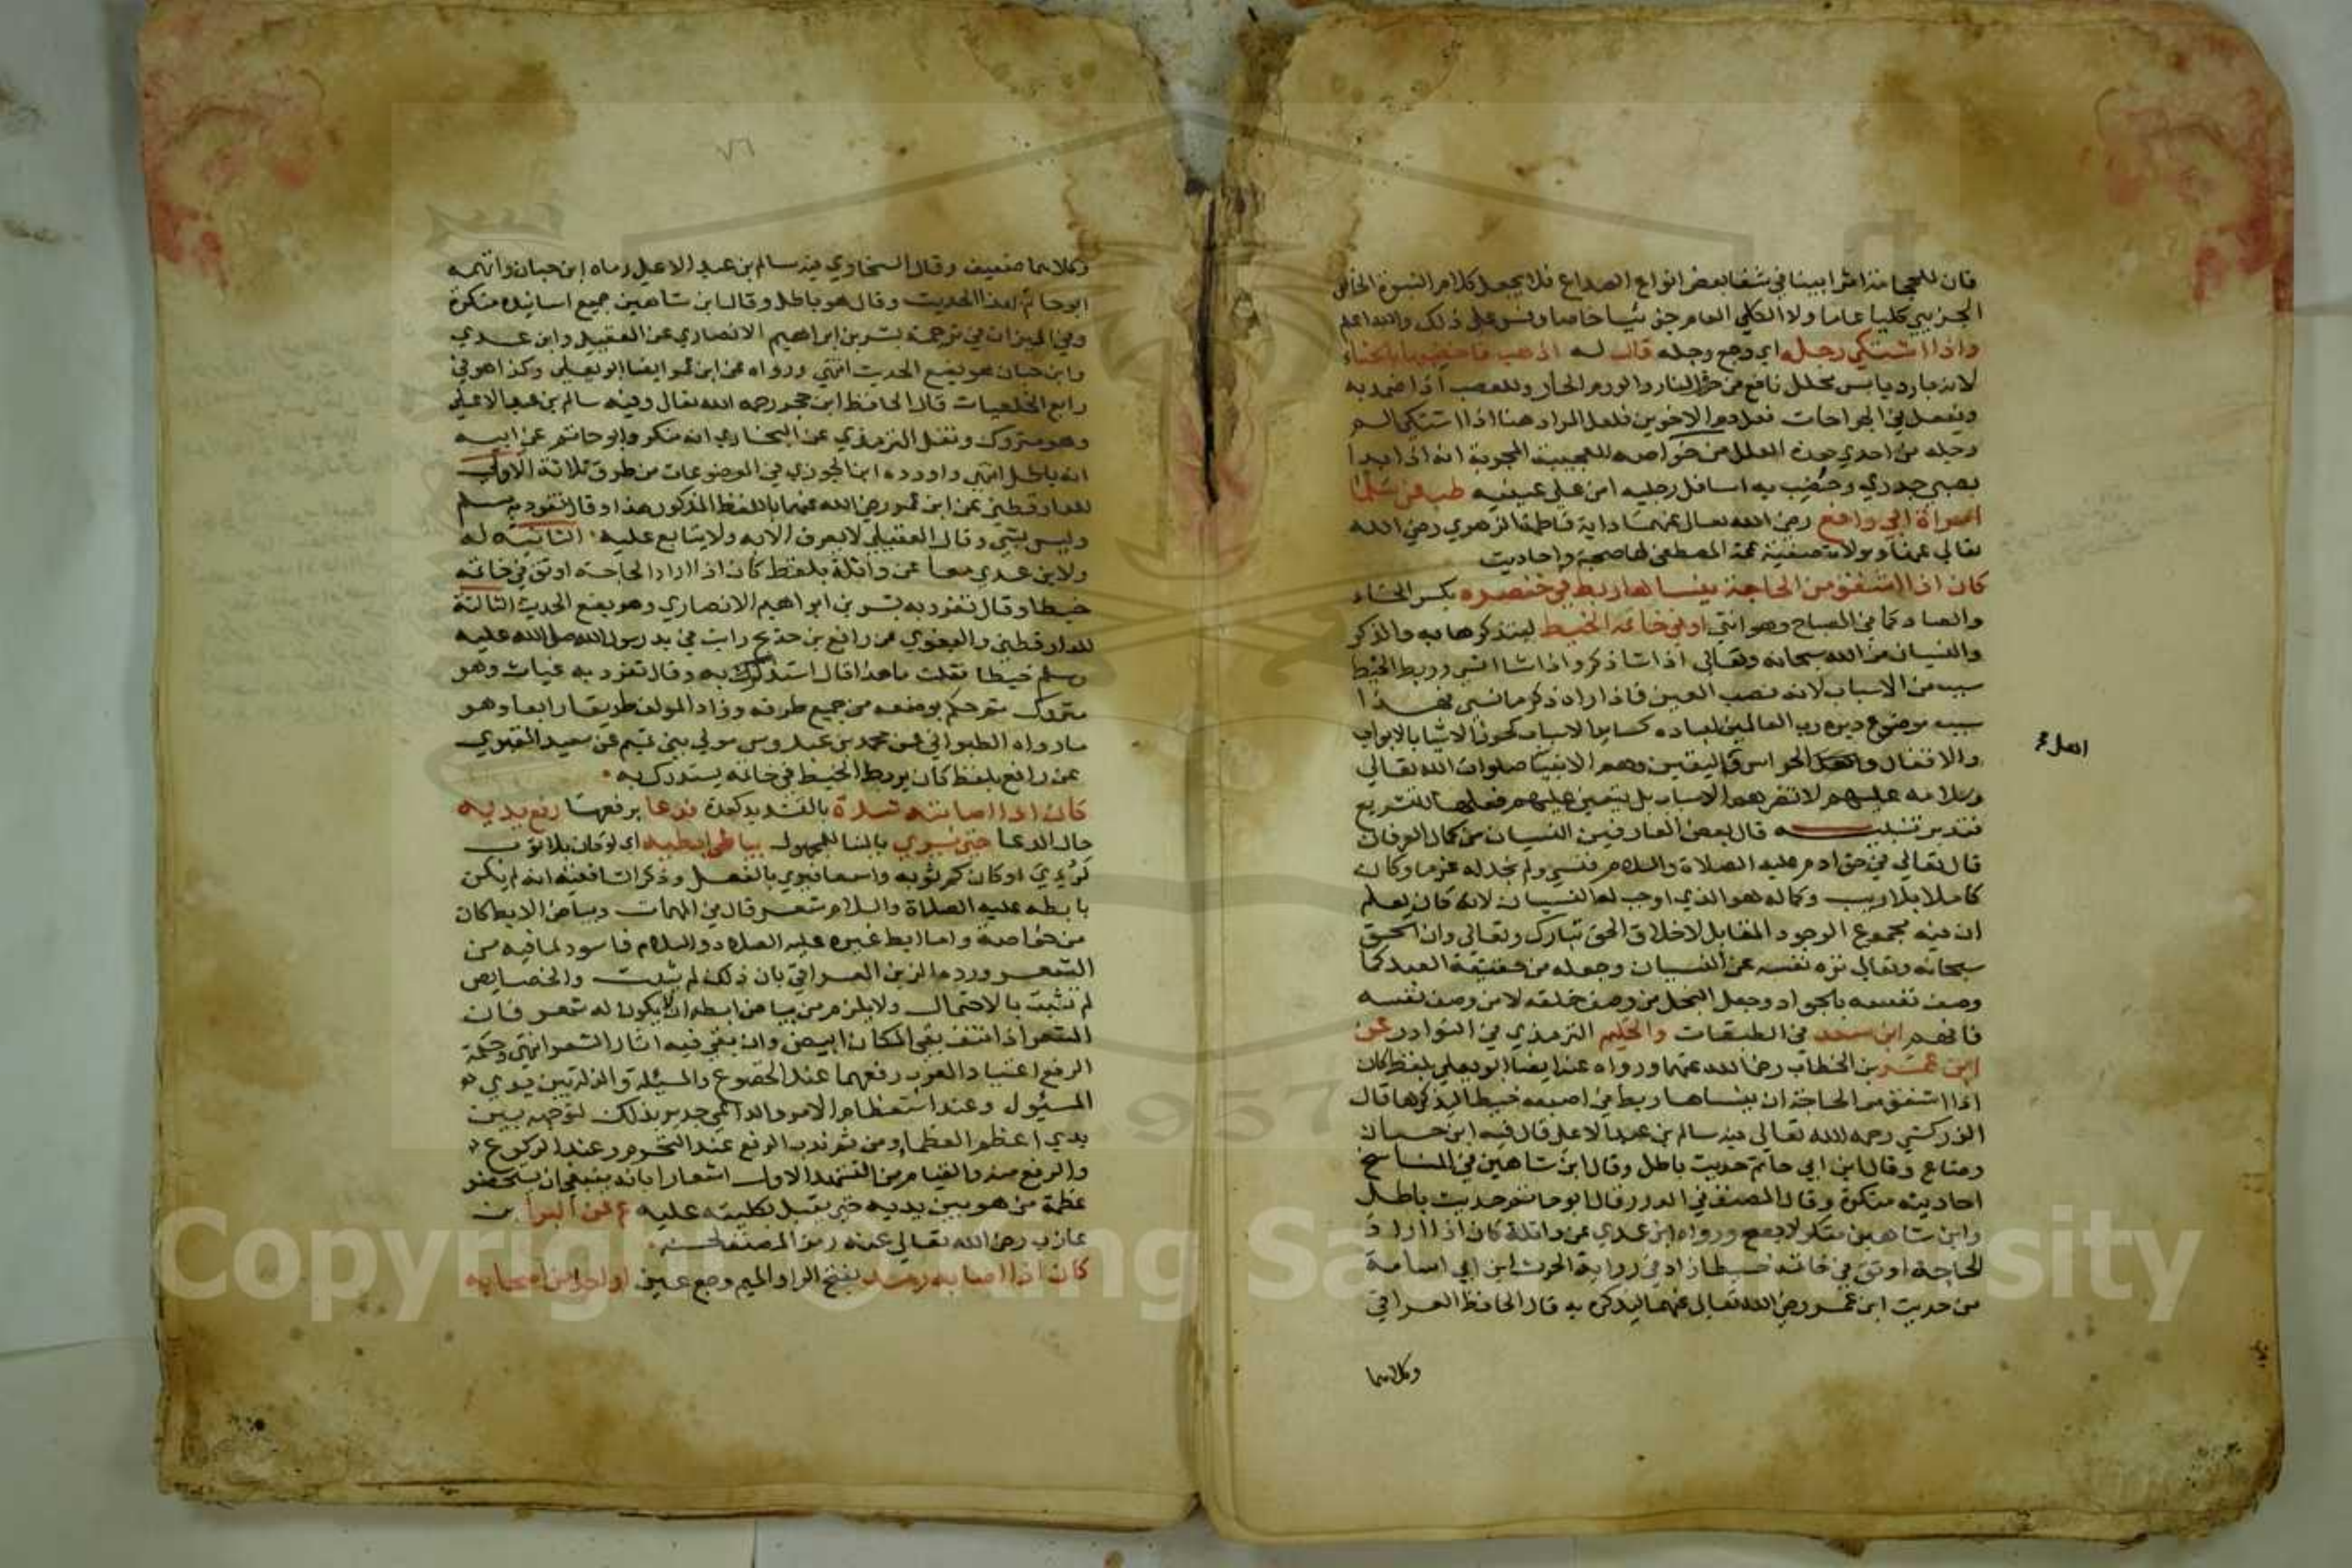 فان للحجامة اثرا بينا في شفا بعض انواع الصداع فلا يجعل كلام النبوة الخاص
الجزيي كليا عاما ولا الكلي العام جزئيا خاصا وقس على ذلك والله اعلم
واذا اشتكى رجله اي وجع رجله قال له اذهب فاخضبها بالحناء
لانه بارد يابس محلل نافع من حرق النار والورم الحار وللعصب اذا ضمد به
ويفعل في الجراحات فعل دم الاخوين فلعل المراد هنا اذا اشتكى الم
رجله من احدى هذه العلل من خواصه العجيبة المجربة انه اذا بدا
بصبي جدري وخضب به اسافل رجليه امن على عينيه طب عن سلمى
امراة ابي رافع رضي الله تعالى عنهما داية فاطمة الزهرى رضي الله
تعالى عنها ومولاة صفية عمة المصطفى لها صحبة واحاديث
كان اذا اشفق من الحاجة ينساها ربط في خنصره بكسر الخاء
والصاد كما في المصباح وهو انثى او في خاتمه الخيط ليتذكرها به والذكر
والنسيان من الله سبحانه وتعالى اذا شا ذكر واذا شا انسى وربط الخيط
سبب من الاسباب لانه نصب العين فاذا راه ذكر ما نسي فهذا
سبب موضوع دبره رب العالمين لعباده كساير الاسباب كحوز الاشيا بالابواب
والاقفال والحراس واليقين وهم الانبيا صلوات الله تعالى
وسلامه عليهم لا تضرهم الاسباب بل يتعين عليهم فعلها للتشريع
فتدبر تنبيه قال بعض العارفين النسيان من كمال العرفان
قال تعالى في حق ادم عليه الصلاة والسلام فنسي ولم نجد له عزما وكان
كاملا بلا ريب وكماله هو الذي اوجب له النسيان لانه كان يعلم
ان فيه مجموع الوجود المقابل لاخلاق الحق تبارك وتعالى وان الحق
سبحانه وتعالى نزه نفسه عن النسيان وجعله من حقيقة العبد كما
وصف نفسه بالجواد وجعل البخل من وصف خلقه لا من وصف نفسه
فافهم ابن سعد في الطبقات والحكيم الترمذي في النوادر عن
ابن عمر بن الخطاب رضي الله عنهما ورواه عنه ايضا ابو يعلى بلفظ كان
اذا اشفق من الحاجة ان ينساها ربط في اصبعه خيطا ليذكرها قال
الزركشي رحمه الله تعالى فيه سالم بن عبد الاعلى قال فيه ابن حبان
وضاع وقال ابن ابي حاتم حديث باطل وقال ابن شاهين في الناسخ
احاديثه منكرة وقال المصنف في الدرر قال ابو حاتم حديث باطل
وابن شاهين منكر لا يصح ورواه ابن عدي عن واثلة كان اذا اراد
الحاجة اوثق في خاتمه خيطا زاد في رواية الحرث ابن ابي اسامة
من حديث ابن عمر رضي الله تعالى عنهما ليذكره به قال الحافظ العراقي
وكلاهما
٧٦
وكلاهما ضعيف وقال السخاوي فيه سالم بن عبد الاعلى رماه ابن حبان واتهمه
ابو حاتم لهذا الحديث وقال هو باطل وقال ابن شاهين جميع اسانيده منكرة
وفي الميزان في ترجمة بشر بن ابراهيم الانصاري عن العقيلي وابن عدي
وابن حبان هو يضع الحديث انتهى ورواه عن ابن عمر ايضا ابو يعلى وكذا هو في
رابع الخلعيات قال الحافظ ابن حجر رحمه الله تعالى وفيه سالم بن عبد الاعلى
وهو متروك ونقل الترمذي عن البخاري انه منكر وابو حاتم عن ابيه
انه باطل انتهى واورده ابن الجوزي في الموضوعات من طرق ثلاثة الاولى
للدارقطني عن ابن عمر رضي الله عنهما باللفظ المذكور هذا وقال تفرد به سالم
وليس بشي وقال العقيلي لا يعرف الا به ولا يتابع عليه الثانية له
ولابن عدي معا عن واثلة بلفظ كان اذا اراد الحاجة اوثق في خاتمه
خيطا وقال تفرد به بشر بن ابراهيم الانصاري وهو يضع الحديث الثالثة
للدارقطني والبغوي عن رافع بن خديج رايت في يد رسول الله صلى الله عليه
وسلم خيطا فقلت ما هذا قال استذكر به وقال تفرد به غياث وهو
متروك ثم حكم بوضعه من جميع طرقه وزاد المولف طريقا رابعا وهو
ما رواه الطبراني عن محمد بن عبدوس مولى بني تميم عن سعيد المقبري
عن رافع بلفظ كان يربط الخيط في خاتمه يستذكر به
كان اذا اصابته شدة بالتشديد كعدة فدعا برفعها رفع يديه
حال الدعا حتى يرى بالبنا للمجهول بياض ابطيه اي لو كان بلا ثوب
لرؤي او كان كم ثوبه واسعا فيرى بالفعل وذكر الشافعية انه لم يكن
بابطه عليه الصلاة والسلام شعر قال في المهمات وبياض الابط كان
من خواصه واما ابط غيره عليه الصلاة والسلام فاسود لما فيه من
الشعر ورده الزين العراقي بان ذلك لم يثبت والخصايص
لم تثبت بالاحتمال ولا يلزم من بياض ابطه ان لا يكون له شعر فان
الشعر اذا نتف بقي المكان ابيض وان بقي فيه اثار الشعر انتهى وحكمة
الرفع اعتياد العرب رفعهما عند الخضوع والمسئلة والذلة بين يدي
المسئول وعند استعظام الامر والداعي جدير بذلك لتوجهه بين
يدي اعظم العظما ومن ثم ندب الرفع عند التحرم وعند الركوع
والرفع منه والقيام من التشهد الاول اشعارا بانه ينبغي ان يستحضر
عظمة من هو بين يديه حتى يقبل بكليته عليه ع عن البرا بن
عازب رضي الله تعالى عنه رمز المصنف لحسنه
كان اذا اصابه رمد بفتح الراء والميم وجع عين او احدا من اصحابه
Copyright © King Saud University
1957